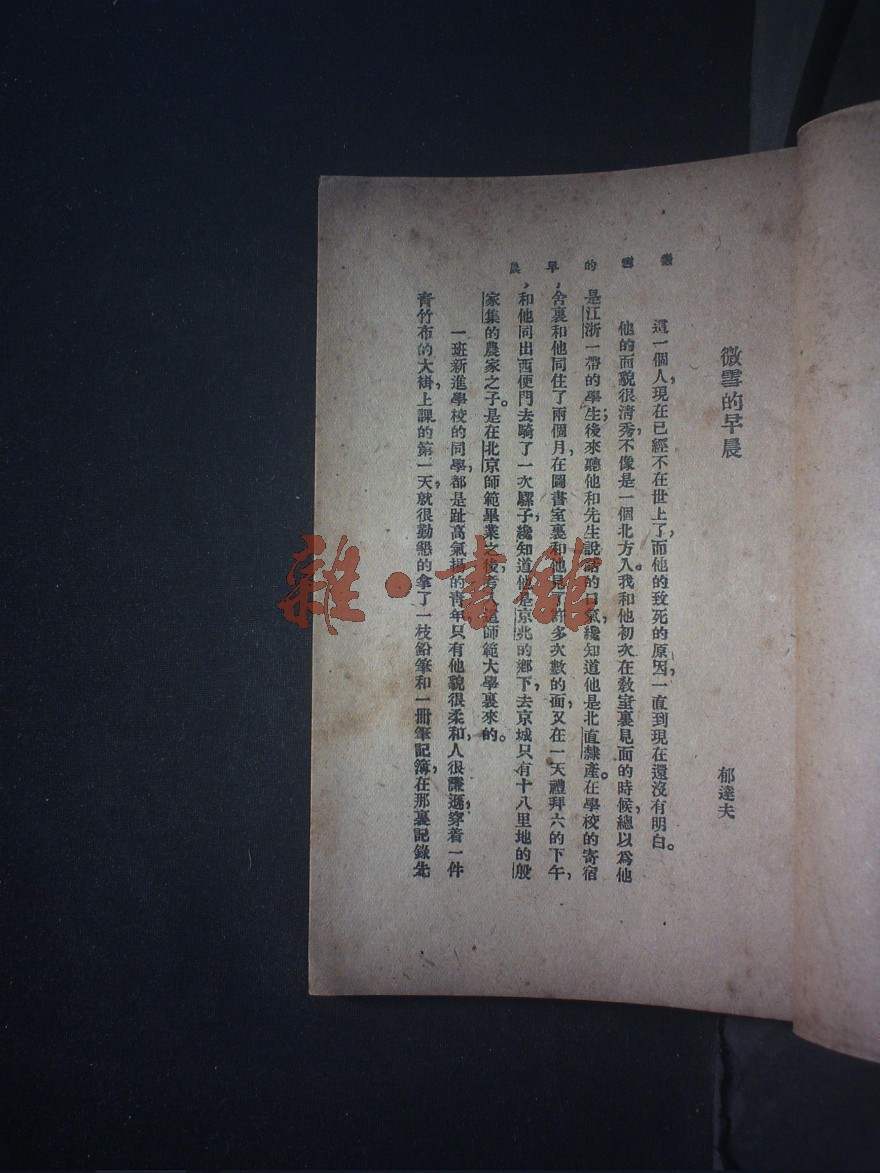 微雪的早晨
微雪的早晨
郁達夫
這一個人,現在已經不在世上了;而他的致死的原因,一直到現在還沒有明白。
他的面貌很清秀,不像是一個北方人。我和他初次在教室裏見面的時候,總以爲他
是江浙一帶的學生;後來聽他和先生說話的口氣,纔知道他是北直隸產。在學校的寄宿
舍裏和他同住了兩個月,在圖書室裏和他見了許多次數的面,又在一天禮拜六的下午,
和他同出西便門去騎了一次騾子,纔知道他是京兆的鄉下,去京城只有十八里地的殷
家集的農家之子。是在北京師範畢業之後,考入這師範大學裏來的。
一班新進學校的同學,都是趾高氣揚的青年,只有他,貌很柔和,人很謙遜,穿着一件
青竹布的大褂,上課的第一天,就很勤懇的拿了一枝鉛筆和一冊筆記簿,在那裏記錄先
雜·書館